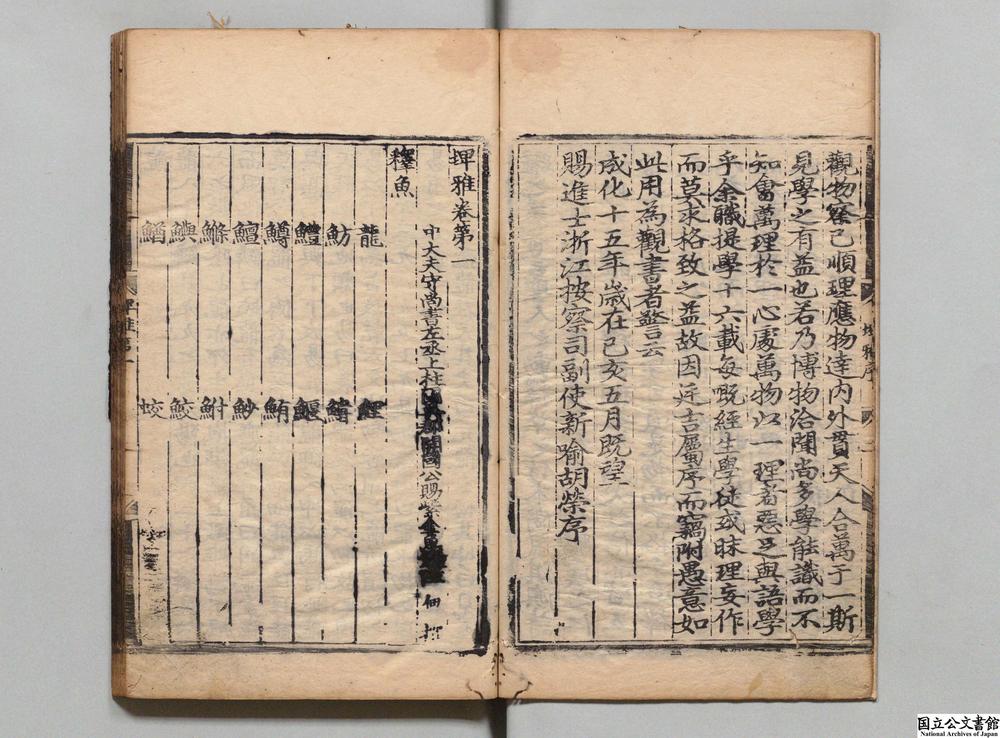 觀物察己順理應物達內外貫天人合萬于一斯
見學之有益也若乃博物洽聞尚多學能識而不
知會萬理於一心處萬物以一理者惡足與語學
乎余職提學十六載每嘅經生學徒或昧理妄作
而莫求格致之益故因廷吉屬序而竊附愚意如
此用為觀書者警言云
成化十五年歲在己亥五月既望
賜進士浙江按察司副使新喻胡榮序
埤雅序
埤雅卷第一
中大夫守尚書左丞上柱國公賜紫金佃
釋魚
龍 鯉
魴 鱒
鱧 鰋
鱒 鮪
鱣 魦
鰷 鮒
鱮 鮫
鰌 蛟
埤雅第一
国立公文書館
National Archives of Japan